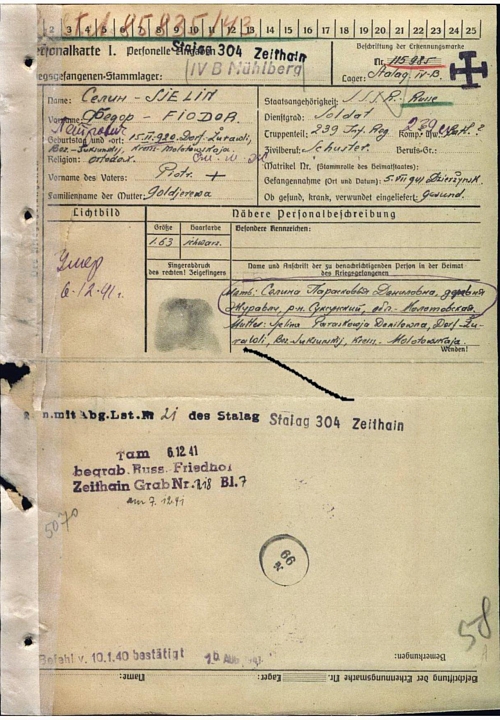 85925/43
2 3 4 5 6 7 8 9 10 11 12 13 14 15 16 17 18 19 20 21 22 23 24 25
Personalkarte I. Personelle
Stalag 304 Zeithain
IV B Mühlberg
Beschriftung der Erkennungsmarke
Nr. 115985
Lager: Stalag IV-B.
egsgefangenen-Stammlager:
Name: Селин - SIELIN
Vorname: Федор - FIODOR.
Петрович
Geburtstag und -ort: 15.
Religion: ortodox.
Vorname des Vaters: Piotr. +
Familienname der Mutter:
Staatsangehörigkeit: Russe
Dienstgrad: Soldat
Truppenteil: 239 Inf. Reg.
Zivilberuf: Schuster. Berufs-Gr.:
Matrikel Nr. (Stammrolle des Heimatstaates):
Gefangennahme (Ort und Datum): 5.VII 941
Ob gesund, krank, verwundet eingeliefert: Gesund.
Lichtbild
Умер
6.12.41.
Nähere Personalbeschreibung
Größe Haarfarbe
1.63 schwarz.
Besondere Kennzeichen:
Fingerabdruck
des rechten! Zeigefingers
Name und Anschrift der zu benachrichtigenden Person in der Heimat
des Kriegsgefangenen
Мать: Селина Парасковья Даниловна, деревня
Журавли, р-н Суксунский, обл - Молотовская.
Mutter: Sielina Paraskowja Danilowna, Dorf-Żu-
rawli, Bez. Suksunskij, Molotowskaja.
Wenden!
mit Abg.Lst.Nr 21 des Stalag Stalag 304 Zeithain
am 6.12.41
begrab. Russ. Friedhof
Zeithain Grab Nr. 218 Bl. 7
am 7.12.41
5070
66
N
58
Befehl v. 10.1.40 bestätigt
Bemerkungen:
Beschriftung der Erkennungsmarke Nr. Lager: Name: